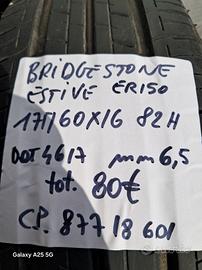 BRIDGESTONE
ESTIVE ER150
175/60X16 82H
DOT 4617 mm 6,5
tot. 80€
CP. 877/8 601
Galaxy A25 5G